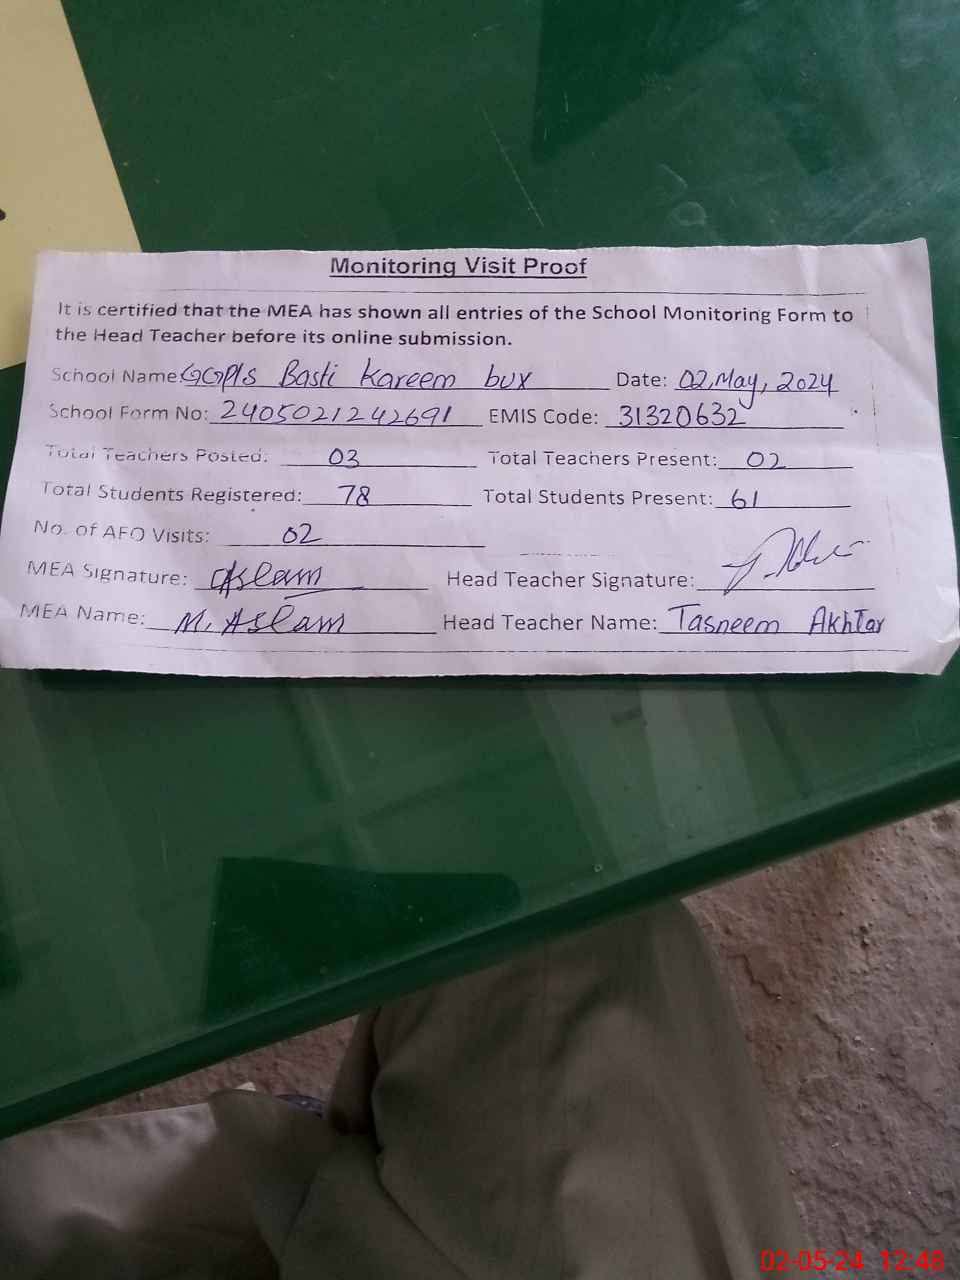 Monitoring Visit Proof
It is certified that the MEA has shown all entries of the School Monitoring Form to
the Head Teacher before its online submission.
School Name: GGPls Basti Kareem bux Date: 02, May, 2024
School Form No: 2405021242691 EMIS Code: 31320632
Total Teachers Posted: 03 Total Teachers Present: 02
Total Students Registered: 78 Total Students Present: 61
No. of AEO Visits: 02
MEA Signature: Aslam Head Teacher Signature:
MEA Name: M. Aslam Head Teacher Name: Tasneem Akhtar
02-05-24 12:48